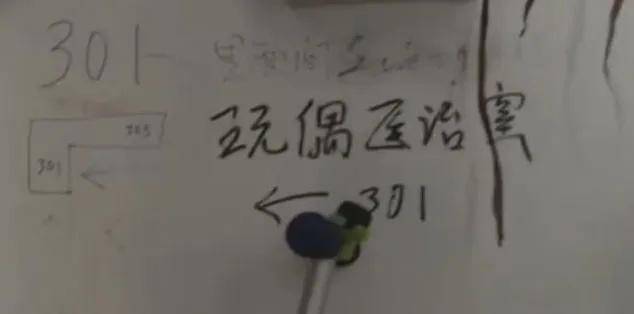 301
305
301
玩偶医治室
← 301